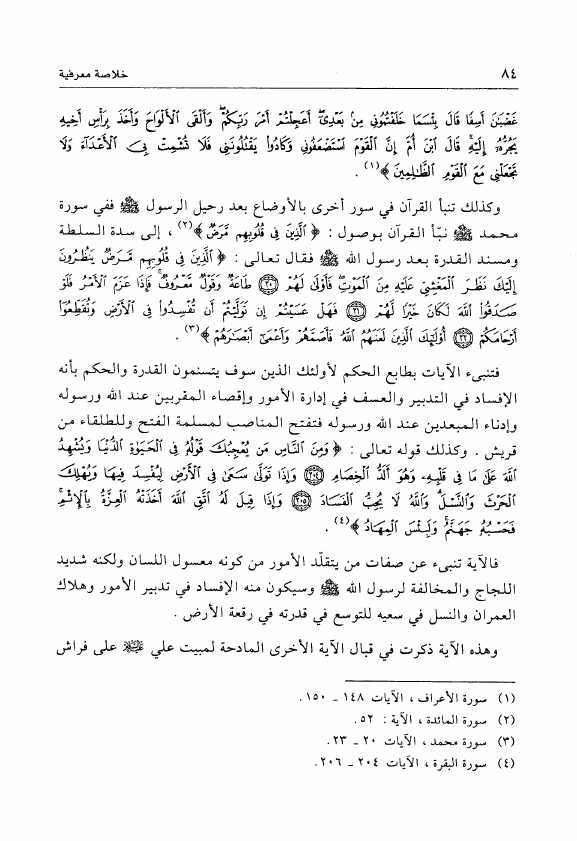 ٨٤ خلاصة معرفية
غَضْبَٰنَ أَسِفًا قَالَ بِئْسَمَا خَلَفْتُمُونِي مِنۢ بَعْدِيٓۖ أَعَجِلْتُمْ أَمْرَ رَبِّكُمْۖ وَأَلْقَى ٱلْأَلْوَاحَ وَأَخَذَ بِرَأْسِ أَخِيهِ
يَجُرُّهُۥٓ إِلَيْهِۚ قَالَ ٱبْنَ أُمَّ إِنَّ ٱلْقَوْمَ ٱسْتَضْعَفُونِي وَكَادُوا۟ يَقْتُلُونَنِي فَلَا تُشْمِتْ بِيَ ٱلْأَعْدَآءَ وَلَا
تَجْعَلْنِي مَعَ ٱلْقَوْمِ ٱلظَّٰلِمِينَ ﴾(١) .
وكذلك تنبأ القرآن في سور أخرى بالأوضاع بعد رحيل الرسول ﷺ ففي سورة
محمد ﷺ نبّأ القرآن بوصول : ﴿ ٱلَّذِينَ فِي قُلُوبِهِم مَّرَضٌ ﴾(٢) ، إلى سدة السلطة
ومسند القدرة بعد رسول الله ﷺ فقال تعالى : ﴿ ٱلَّذِينَ فِي قُلُوبِهِم مَّرَضٌ يَنظُرُونَ
إِلَيْكَ نَظَرَ ٱلْمَغْشِيِّ عَلَيْهِ مِنَ ٱلْمَوْتِۖ فَأَوْلَىٰ لَهُمْ ۝٢٠ طَاعَةٌ وَقَوْلٌ مَّعْرُوفٌۚ فَإِذَا عَزَمَ ٱلْأَمْرُ فَلَوْ
صَدَقُوا۟ ٱللَّهَ لَكَانَ خَيْرًا لَّهُمْ ۝٢١ فَهَلْ عَسَيْتُمْ إِن تَوَلَّيْتُمْ أَن تُفْسِدُوا۟ فِي ٱلْأَرْضِ وَتُقَطِّعُوٓا۟
أَرْحَامَكُمْ ۝٢٢ أُو۟لَٰٓئِكَ ٱلَّذِينَ لَعَنَهُمُ ٱللَّهُ فَأَصَمَّهُمْ وَأَعْمَىٰٓ أَبْصَٰرَهُمْ ﴾(٣) .
فتنبىء الآيات بطابع الحكم لأولئك الذين سوف يتسنمون القدرة والحكم بأنه
الإفساد في التدبير والعسف في إدارة الأمور وإقصاء المقربين عند الله ورسوله
وإدناء المبعدين عند الله ورسوله فتفتح المناصب لمسلمة الفتح وللطلقاء من
قريش . وكذلك قوله تعالى : ﴿ وَمِنَ ٱلنَّاسِ مَن يُعْجِبُكَ قَوْلُهُۥ فِي ٱلْحَيَوٰةِ ٱلدُّنْيَا وَيُشْهِدُ
ٱللَّهَ عَلَىٰ مَا فِي قَلْبِهِۦ وَهُوَ أَلَدُّ ٱلْخِصَامِ ۝٢٠٤ وَإِذَا تَوَلَّىٰ سَعَىٰ فِي ٱلْأَرْضِ لِيُفْسِدَ فِيهَا وَيُهْلِكَ
ٱلْحَرْثَ وَٱلنَّسْلَۗ وَٱللَّهُ لَا يُحِبُّ ٱلْفَسَادَ ۝٢٠٥ وَإِذَا قِيلَ لَهُ ٱتَّقِ ٱللَّهَ أَخَذَتْهُ ٱلْعِزَّةُ بِٱلْإِثْمِۚ
فَحَسْبُهُۥ جَهَنَّمُۚ وَلَبِئْسَ ٱلْمِهَادُ ﴾(٤) .
فالآية تنبىء عن صفات من يتقلّد الأمور من كونه معسول اللسان ولكنه شديد
اللجاج والمخالفة لرسول الله ﷺ وسيكون منه الإفساد في تدبير الأمور وهلاك
العمران والنسل في سعيه للتوسع في قدرته في رقعة الأرض .
وهذه الآية ذكرت في قبال الآية الأخرى المادحة لمبيت علي عليه السلام على فراش
(١) سورة الأعراف ، الآيات ١٤٨ ـ ١٥٠ .
(٢) سورة المائدة ، الآية : ٥٢ .
(٣) سورة محمد ، الآيات ٢٠ ـ ٢٣ .
(٤) سورة البقرة ، الآيات ٢٠٤ ـ ٢٠٦ .